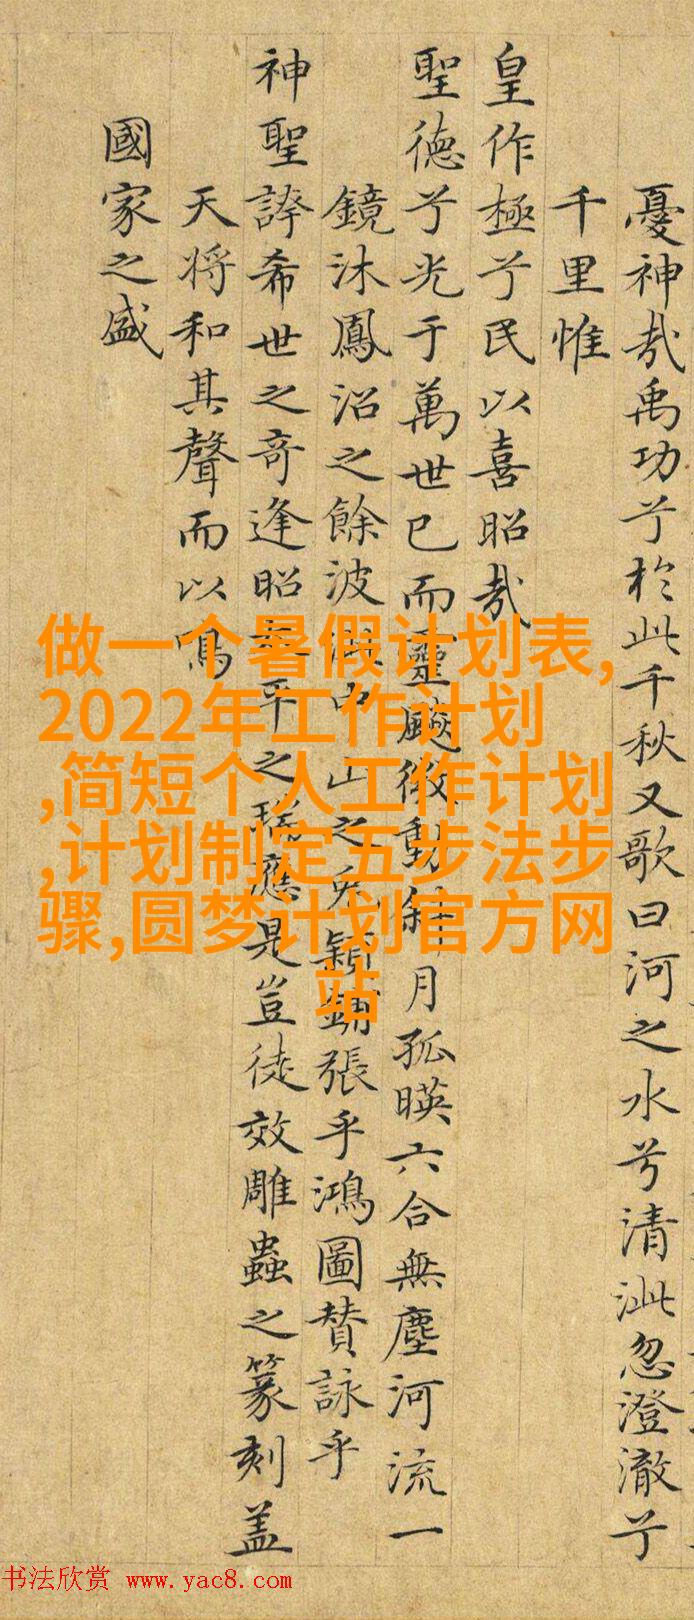 憂神哉禹功兮於此千秋又歌曰河之水兮清泚忽澄澈兮
千里惟
皇作極兮民以喜昭哉
聖德兮光于萬世已而靈飈微動斜月孤暎六合無塵河流一
鏡沐鳳沼之餘波 中山之兔穎鋪張乎鴻圖賛詠乎
神聖誇希世之奇逢昭 平之瑞應是豈徒效雕蟲之篆刻盖
天将和其聲而以鳴
國家之盛
做一个暑假计划表,
2022年工作计划
,简短个人工作计划
,计划制定五步法步
骤,圆梦计划官方网
站
书法欣赏 www.yac8.com